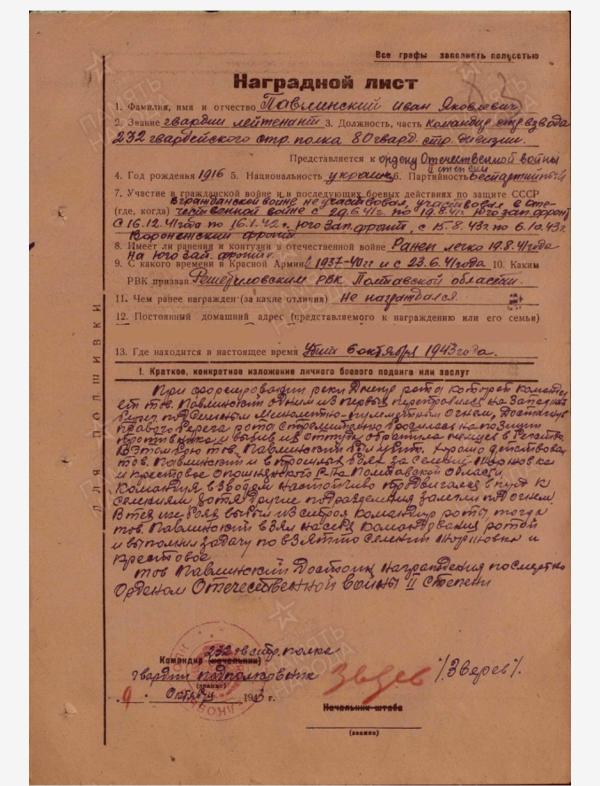 Все графы заполнять полностью
Наградной лист
1. Фамилия, имя и отчество Павлинский Иван Яковлевич
2. Звание гвардии лейтенант 3. Должность, часть командир стр. взвода
232 гвардейского стр. полка 80 гвард. стр. дивизии.
Представляется к ордену Отечественной войны
II степени
4. Год рождения 1916 5. Национальность украинец 6. Партийность беспартийный
7. Участие в гражданской войне и в последующих боевых действиях по защите СССР
в гражданской войне не участвовал, участвовал в оте-
(где, когда) чественной войне с 29.6.41г. по 19.8.41г. юго зап. фронт
С 16.12.41г по 16.1.42г. юго зап. фронт, с 15.8.43г. по 6.10.43г.
Воронежский фронт
8. Имеет ли ранения и контузии в отечественной войне Ранен легко 19.8.41 года
на юго зап. фронте
9. С какого времени в Красной Армии с 1937-40гг и с 23.6.41 года 10. Каким
РВК призван Решетиловским РВК Полтавской области.
11. Чем ранее награжден (за какие отличия) Не награждался
12. Постоянный домашний адрес (представляемого к награждению или его семьи)
13. Где находится в настоящее время Убит 6 октября 1943 года.
ДЛЯ ПОДШИВКИ
I. Краткое, конкретное изложение личного боевого подвига или заслуг
При форсировании реки Днепр рота которой командует
тов. Павлинский одним из первых переправилась на Западный
берег под сильным минометно-пулеметным огнем, достигнув
правого берега рота стремительно бросилась на позиции
противника и выбив из
обратила немцев в бегство
В этом бою тов. Павлинский был убит. Хорошо действовал
тов. Павлинский и в прошлых боях за селения
и Крестовое Опошнянского р-на Полтавской области
Командуя взводом настойчиво продвигался в пут к
селениям хотя другие подразделения залегли под огнем.
В тех же боях выбыл из строя командир роты тогда
тов. Павлинский взял на себя командования ротой
и выполнил задачу по взятию селений и
Крестовое.
тов Павлинский достоин награждения посмертно
Орденом Отечественной войны II степени
232 гв стр. полка
Командир (начальник)
гвардии подполковник Зверев /Зверев/
(звание)
9 Октября 1943 г.
Начальник штаба
(звание)
ПАМЯТЬ НАРОДА